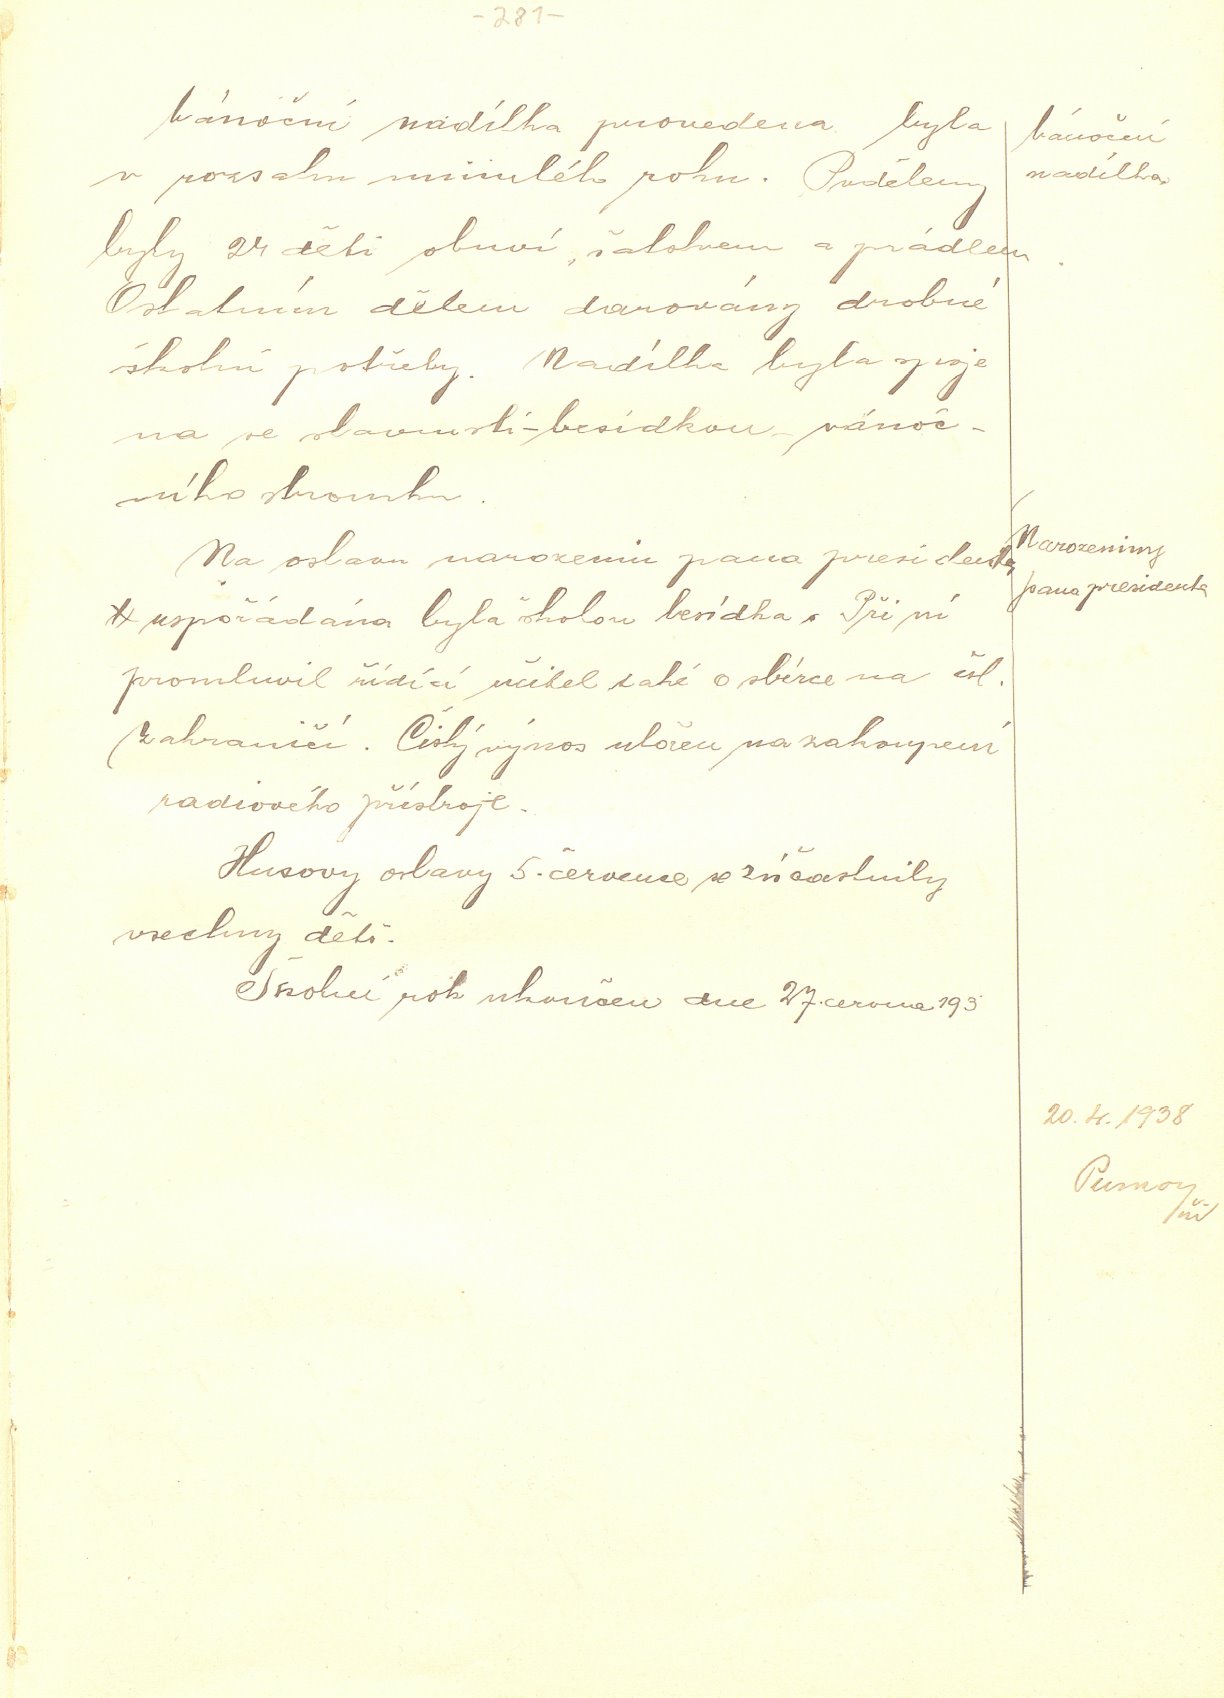 -281-
Vánoční nadílka provedena byla
v rozsahu minulého roku. Poděleny
byly 24 děti obuví, šatstvem a prádlem.
Ostatním dětem darovány drobné
školní potřeby. Nadílka byla spoje
na se slavností-besídkou-vánoč-
ního stromku.
Na oslavu narozenin pana presidenta
uspořádána byla školou besídka. Při ní
promluvil řídící učitel také o sbírce na čsl.
zahraničí. Čistý výnos uložen na zakoupení
radiového přístroje.
Husovy oslavy 5. července se zúčastnily
všechny děti.
Školní rok ukončen dne 27. června 193
Vánoční
nadílka.
Narozeniny
pana presidenta
20. 4. 1938